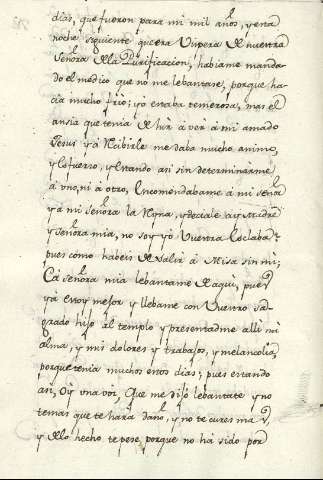 dias, que fueron para mi mil años, y esta
noche siguiente que era Vispera de nuestra
Señora de la Purificacion, habiame manda-
do el medico que no me lebantase, porque ha-
cia mucho frio; yo estaba temerosa, mas el
ansia que tenia de hir à vèr à mi amado
Jesus y à recibirle me daba mucho animo,
y esfuerzo, y estando asi sin determinarme
à uno, ni à otro, encomendabame à mi señor
y à mi señora la Reyna, y deciale: ay Madre
y señora mia, no soy yo Vuestra esclaba?
pues como habeis de salir à Misa sin mi;
Ea señora mia lebantame de aqui, pues
ya estoy mejor y llebame con Vuestro sa-
grado hijo al templo y presentadme alli mi
alma, y mis dolores y trabajos, y melancolia,
porque tenia muchos estos dias; pues estando
asi, oy una voz, que me dijo lebantate y no
temas que te hará daño, y no te cures mas,
y de lo hecho te pese, porque no ha sido por